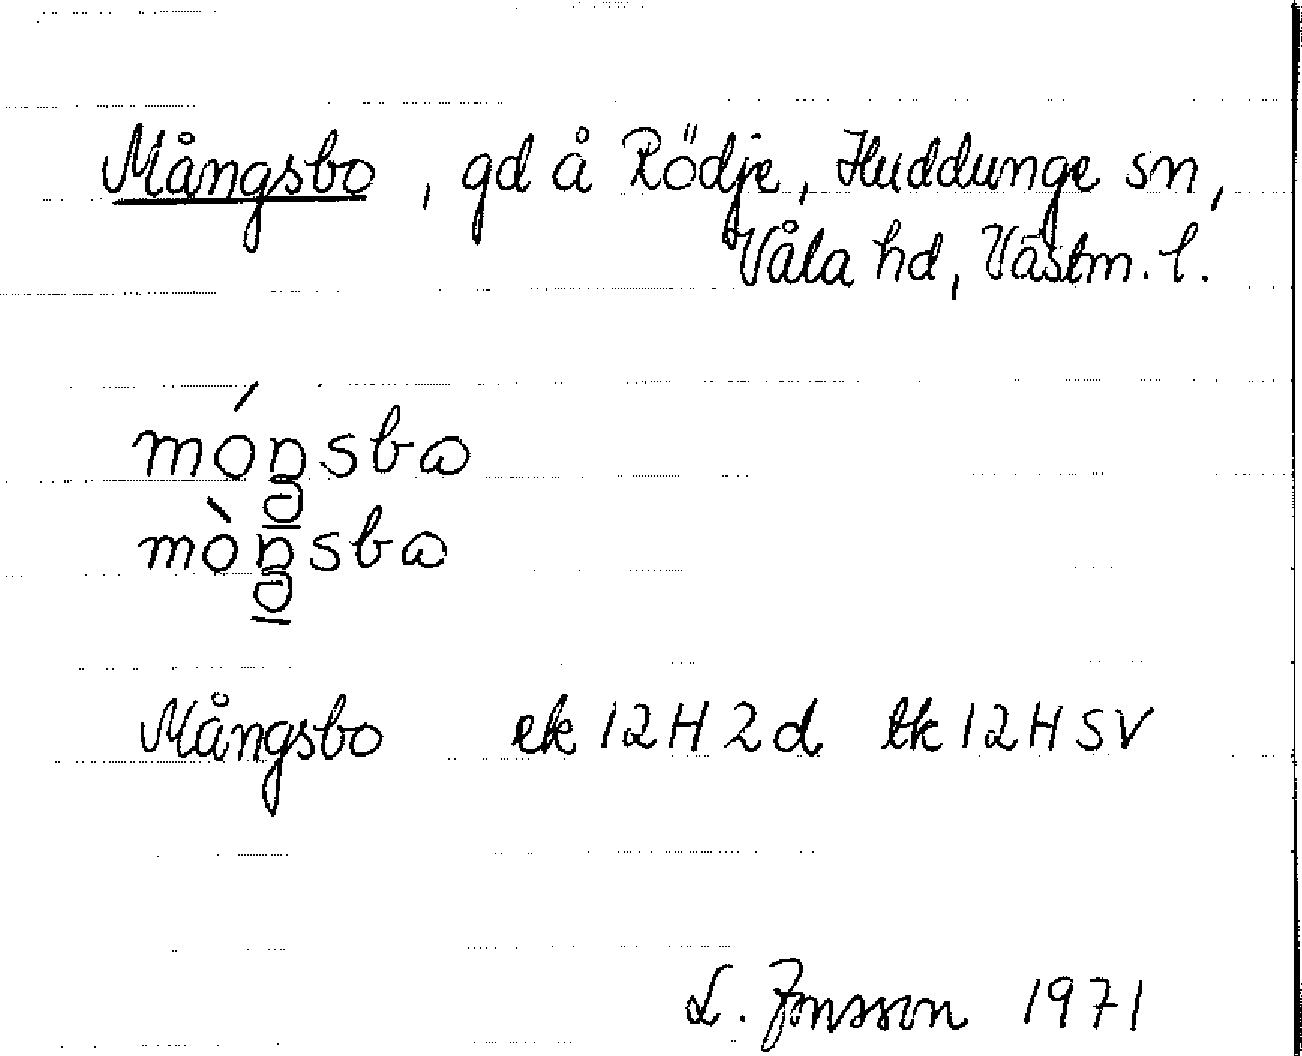 Mångsbo, gd å Rödje, Huddunge sn,
Våla hd, Västm. l.
móŋsbω
mòŋsbω
Mångsbo ek 12H2d tk 12HSV
L. Jonsson 1971